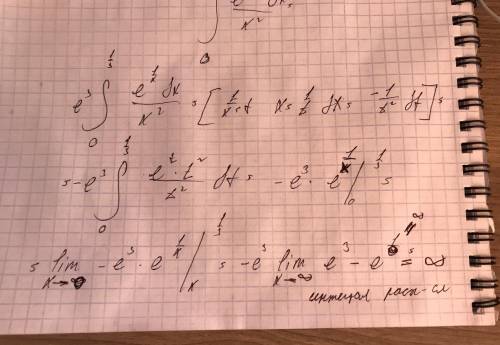 ∫₀ e dx / x²
e³ ∫₀^{1/3} e^{1/x} dx / x² = [ 1/x = t  x = 1/t  dx = -1/t² dt ] =
= -e³ ∫₀^{1/3} e^t · t² / t² dt = -e³ · e^{1/x} |₀^{1/3} =
= lim x→0 -e³ · e^{1/x} |ₓ^{1/3} = -e³ lim x→∞ e³ - e^{1/0 = ∞} = ∞
интеграл расх-ся